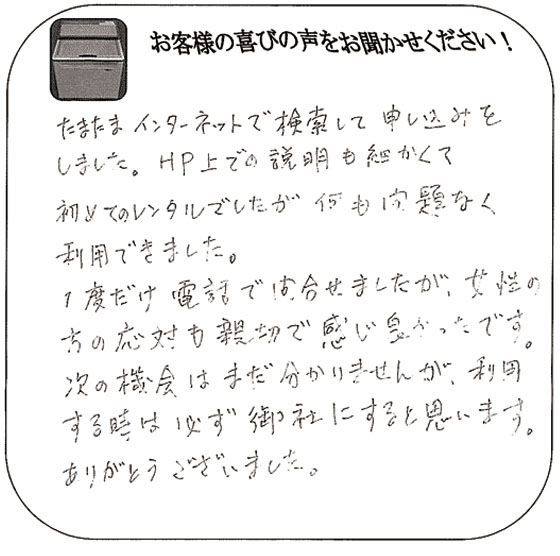 お客様の喜びの声をお聞かせください！
たまたまインターネットで検索して申し込みを
しました。HP上での説明も細かくて
初めてのレンタルでしたが何も問題なく
利用できました。
1度だけ電話で問合せましたが、女性の
方の応対も親切で感じ良かったです。
次の機会はまだ分かりませんが、利用
する時は必ず御社にすると思います。
ありがとうございました。